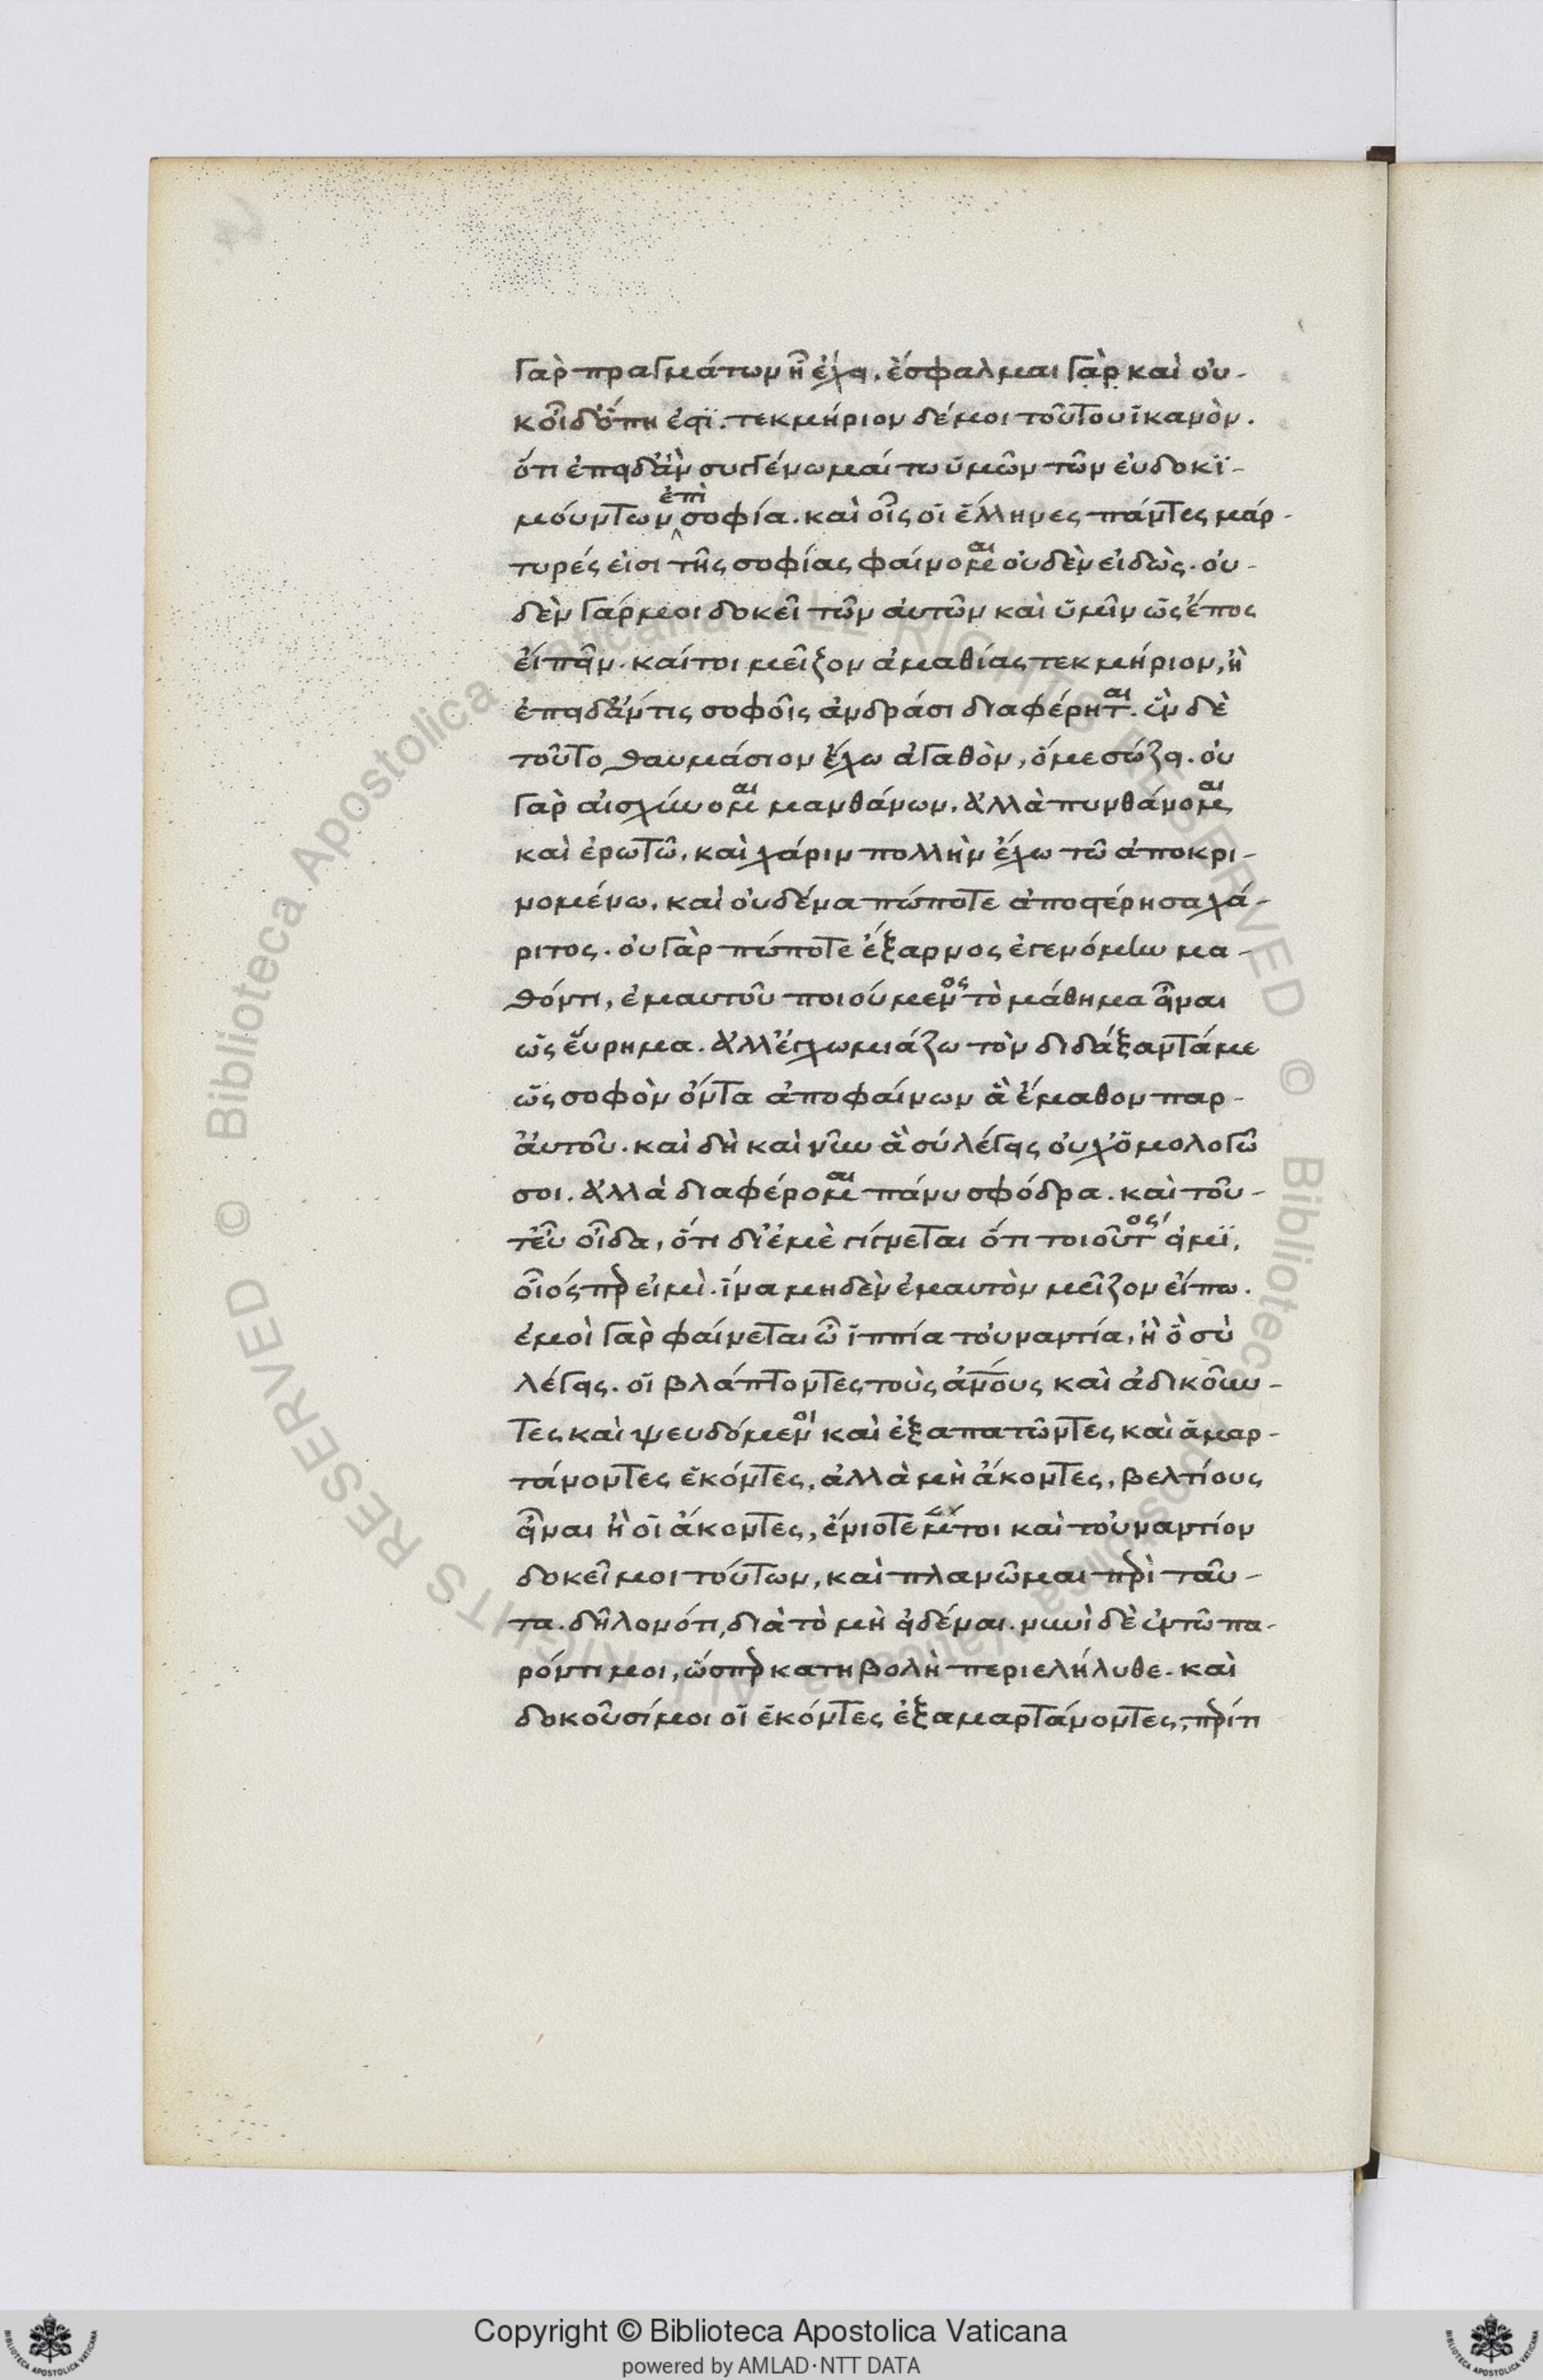 γὰρ πραγμάτων ἧ ἔχει. ἔσφαλμαι γὰρ καὶ οὐ-
κ οἶδ' ὅπη ἐςϊ. τεκμήριον δέ μοι τούτου ἱκανὸν.
ὅτι ἐπειδὰν συγγένωμαί τω ὑμῶν τῶν εὐδοκϊ-
μούντων ἐπὶ σοφία. καὶ οἷς οἱ ἕλληνες πάντες μάρ-
τυρές εἰσι τῆς σοφίας φαίνομαι οὐδὲν εἰδὼς. οὐ-
δὲν γάρ μοι δοκεῖ τῶν αὐτῶν καὶ ὑμῖν ὡς ἔπος
εἰπεῖν. καίτοι μεῖζον ἀμαθίας τεκμήριον, ἢ
ἐπειδάν τις σοφοῖς ἀνδράσι διαφέρηται. ἓν δὲ
τοῦτο θαυμάσιον ἔχω ἀγαθὸν, ὅ με σώζει. οὐ
γὰρ αἰσχύνομαι μανθάνων. ἀλλὰ πυνθάνομαι
καὶ ἐρωτῶ. καὶ χάριν πολλὴν ἔχω τῶ ἀποκρι-
νομένω. καὶ οὐδένα πώποτε ἀπεστέρησα χά-
ριτος. οὐ γὰρ πώποτε ἔξαρνος ἐγενόμην μα-
θόντι, ἐμαυτοῦ ποιούμενος τὸ μάθημα εἶναι
ὡς εὕρημα. ἀλλ' ἐγκωμιάζω τὸν διδάξαντά με
ὡς σοφὸν ὄντα ἀποφαίνων ἃ ἔμαθον παρ-
αὐτοῦ. καὶ δὴ καὶ νῦν ἃ σὺ λέγεις οὐχ ὁμολογῶ
σοι. ἀλλὰ διαφέρομαι πάνυ σφόδρα. καὶ τοῦ-
τ' εὖ οἶδα, ὅτι δι' ἐμὲ γίγνεται ὅτι τοιοῦτός εἰμϊ,
οἷός περ εἰμὶ. ἵνα μηδὲν ἐμαυτὸν μεῖζον εἴπω.
ἐμοὶ γὰρ φαίνεται ὦ ἱππία τοὐναντία, ἢ ὃ σὺ
λέγεις. οἱ βλάπτοντες τοὺς ἀνους καὶ ἀδικοῦν-
τες καὶ ψευδόμενοι καὶ ἐξαπατῶντες καὶ ἁμαρ-
τάνοντες ἑκόντες, ἀλλὰ μὴ ἄκοντες, βελτίους
εἶναι ἢ οἱ ἄκοντες, ἐνίοτε μέντοι καὶ τοὐναντίον
δοκεῖ μοι τούτων, καὶ πλανῶμαι περὶ ταῦ-
τα. δῆλον ὅτι, διὰ τὸ μὴ εἰδέναι. νυνὶ δὲ ἐν τῶ πα-
ρόντι μοι, ὥσπερ κατηβολὴ περιελήλυθε. καὶ
δοκοῦσί μοι οἱ ἑκόντες ἐξαμαρτάνοντες, περί τι
Copyright © Biblioteca Apostolica Vaticana
powered by AMLAD·NTT DATA